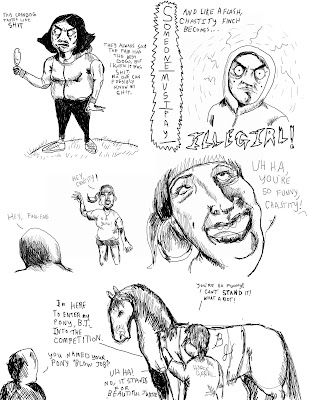 THIS CORNDOG
TASTES LIKE
SHIT
THEY ALWAYS SAID
THE FAIR HAD
THE BEST
DOGS, BUT
I GUESS IT WAS
SHIT.
SHIT.
SOMEONE MUST PAY
AND LIKE A FLASH,
CHASTITY FINCH
BECOMES...
ILLEGIRL!
HEY,
CHASTITY!
HEY, FAN-FAN
UH HA,
YOU'RE
SO FUNNY,
CHASTITY!
YOU'RE SO FUNNY!
I CAN'T STAND IT!
WHAT A RIOT!
I'M HERE
TO ENTER MY
PONY, B.J.
INTO THE
COMPETITION.
YOU NAMED YOUR
PONY BLOW JOB?
UH HA!
NO, IT STANDS
FOR
BEAUTIFUL